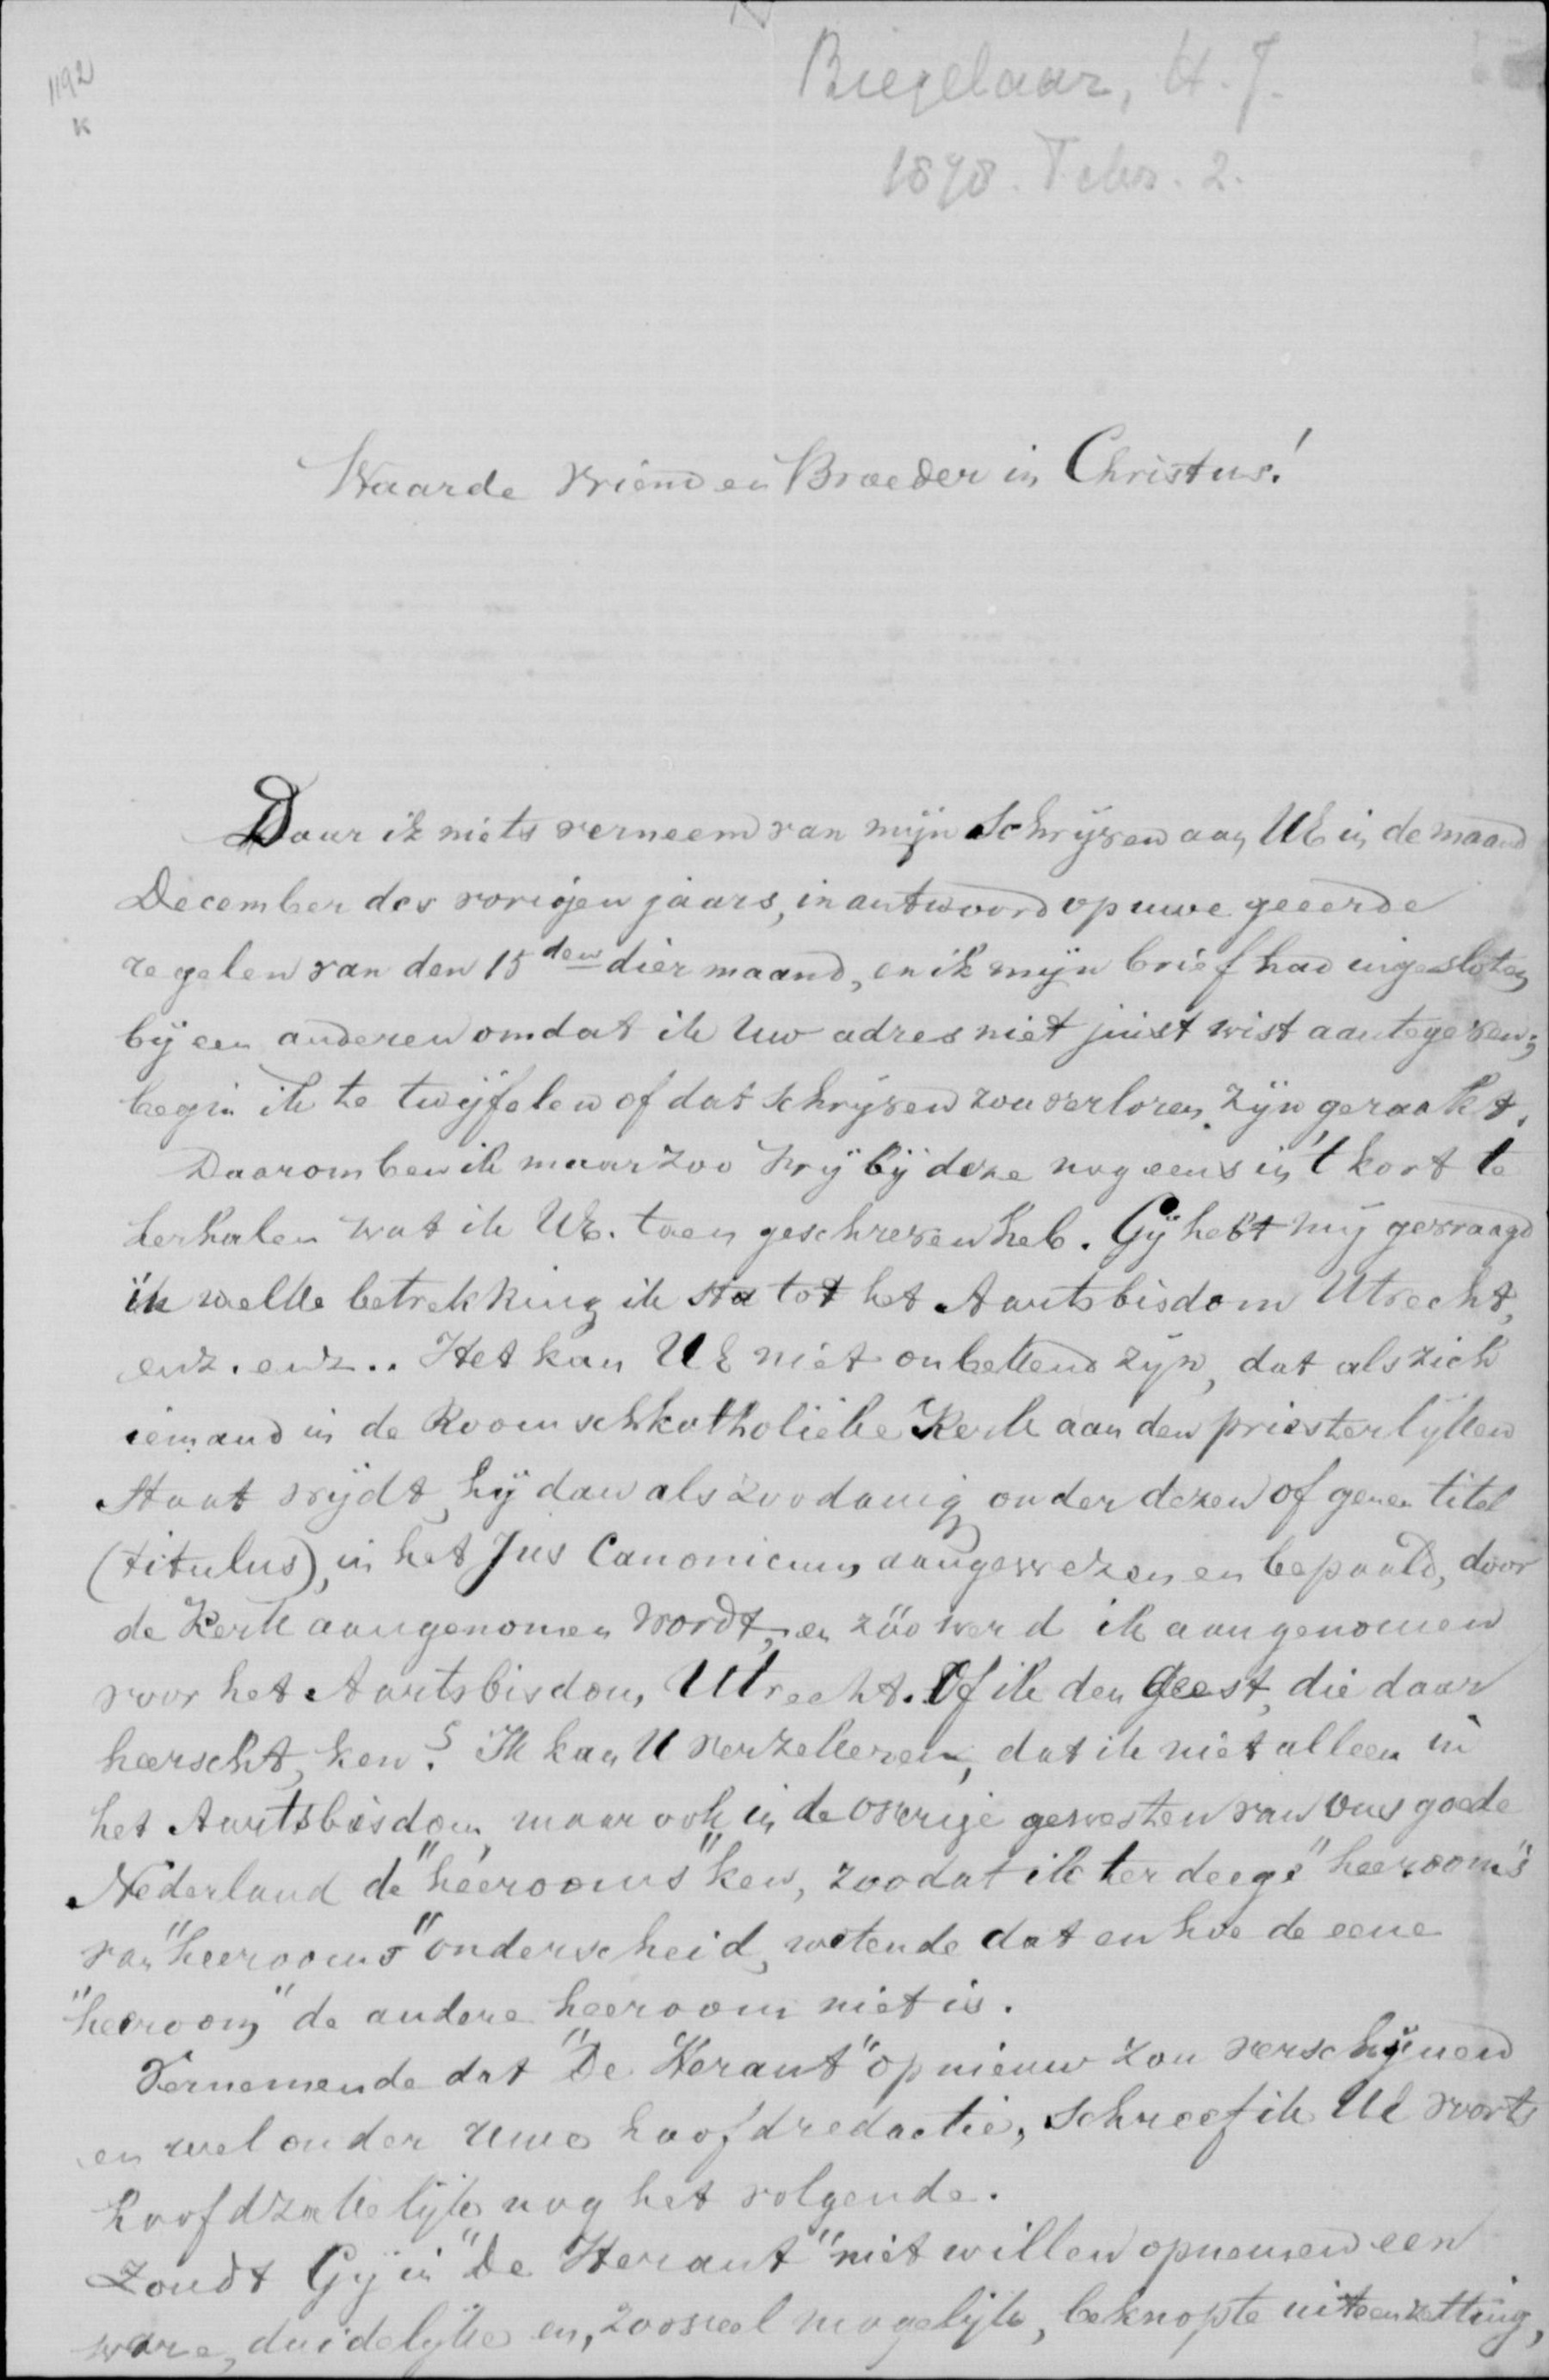 1192
K
Biegelaar, H.J.
1878. Febr. 2.
Waarde vriend en Broeder in Christus!
Daar ik niets verneem van mijn schrijven aan UE in de maand
December des vorigen jaars, in antwoord op uwe geeerde
regelen van den 15den dier maand, en ik mijn brief had ingesloten
bij een anderen omdat ik Uw adres niet juist wist aantegeven;
begin ik te twijfelen of dat schrijven zou verloren zijn geraakt.
Daarom ben ik maar zoo vrij bij deze nog eens in 't kort te
herhalen wat ik UE. toen geschreven heb. Gij hebt mij gevraagd
in welke betrekking ik sta tot het Aartsbisdom Utrecht,
enz. enz.. Het kan UE niet onbekend zijn, dat als zich
iemand in de Roomschkatholieke Kerk aan den priesterlijken
Staat wijdt, hij dan als zoodanig onder dezen of genen titel
(titulus), in het Jus Canonicum aangewezen en bepaald, door
de Kerk aangenomen wordt, en zóó werd ik aangenomen
voor het Aartsbisdom Utrecht. Of ik den geest, die daar
heerscht, ken? Ik kan U verzekeren, dat ik niet alleen in
het Aartsbisdom maar ook in de overige gewesten van ons goede
Nederland de "heerooms" ken, zoodat ik ter deege "heeroom"s
van "heerooms" onderscheid, wetende dat en hoe de eene
"heeroom" de andere heeroom niet is.
Vernemende dat "De Heraut" op nieuw zou verschijnen
en wel onder uwe hoofdredactie, schreef ik UE voorts
hoofdzakelijk nog het volgende.
Zoudt Gij in "De Heraut" niet willen opnemen een
ware, duidelijke en, zooveel mogelijk, beknopte uiteenzetting,